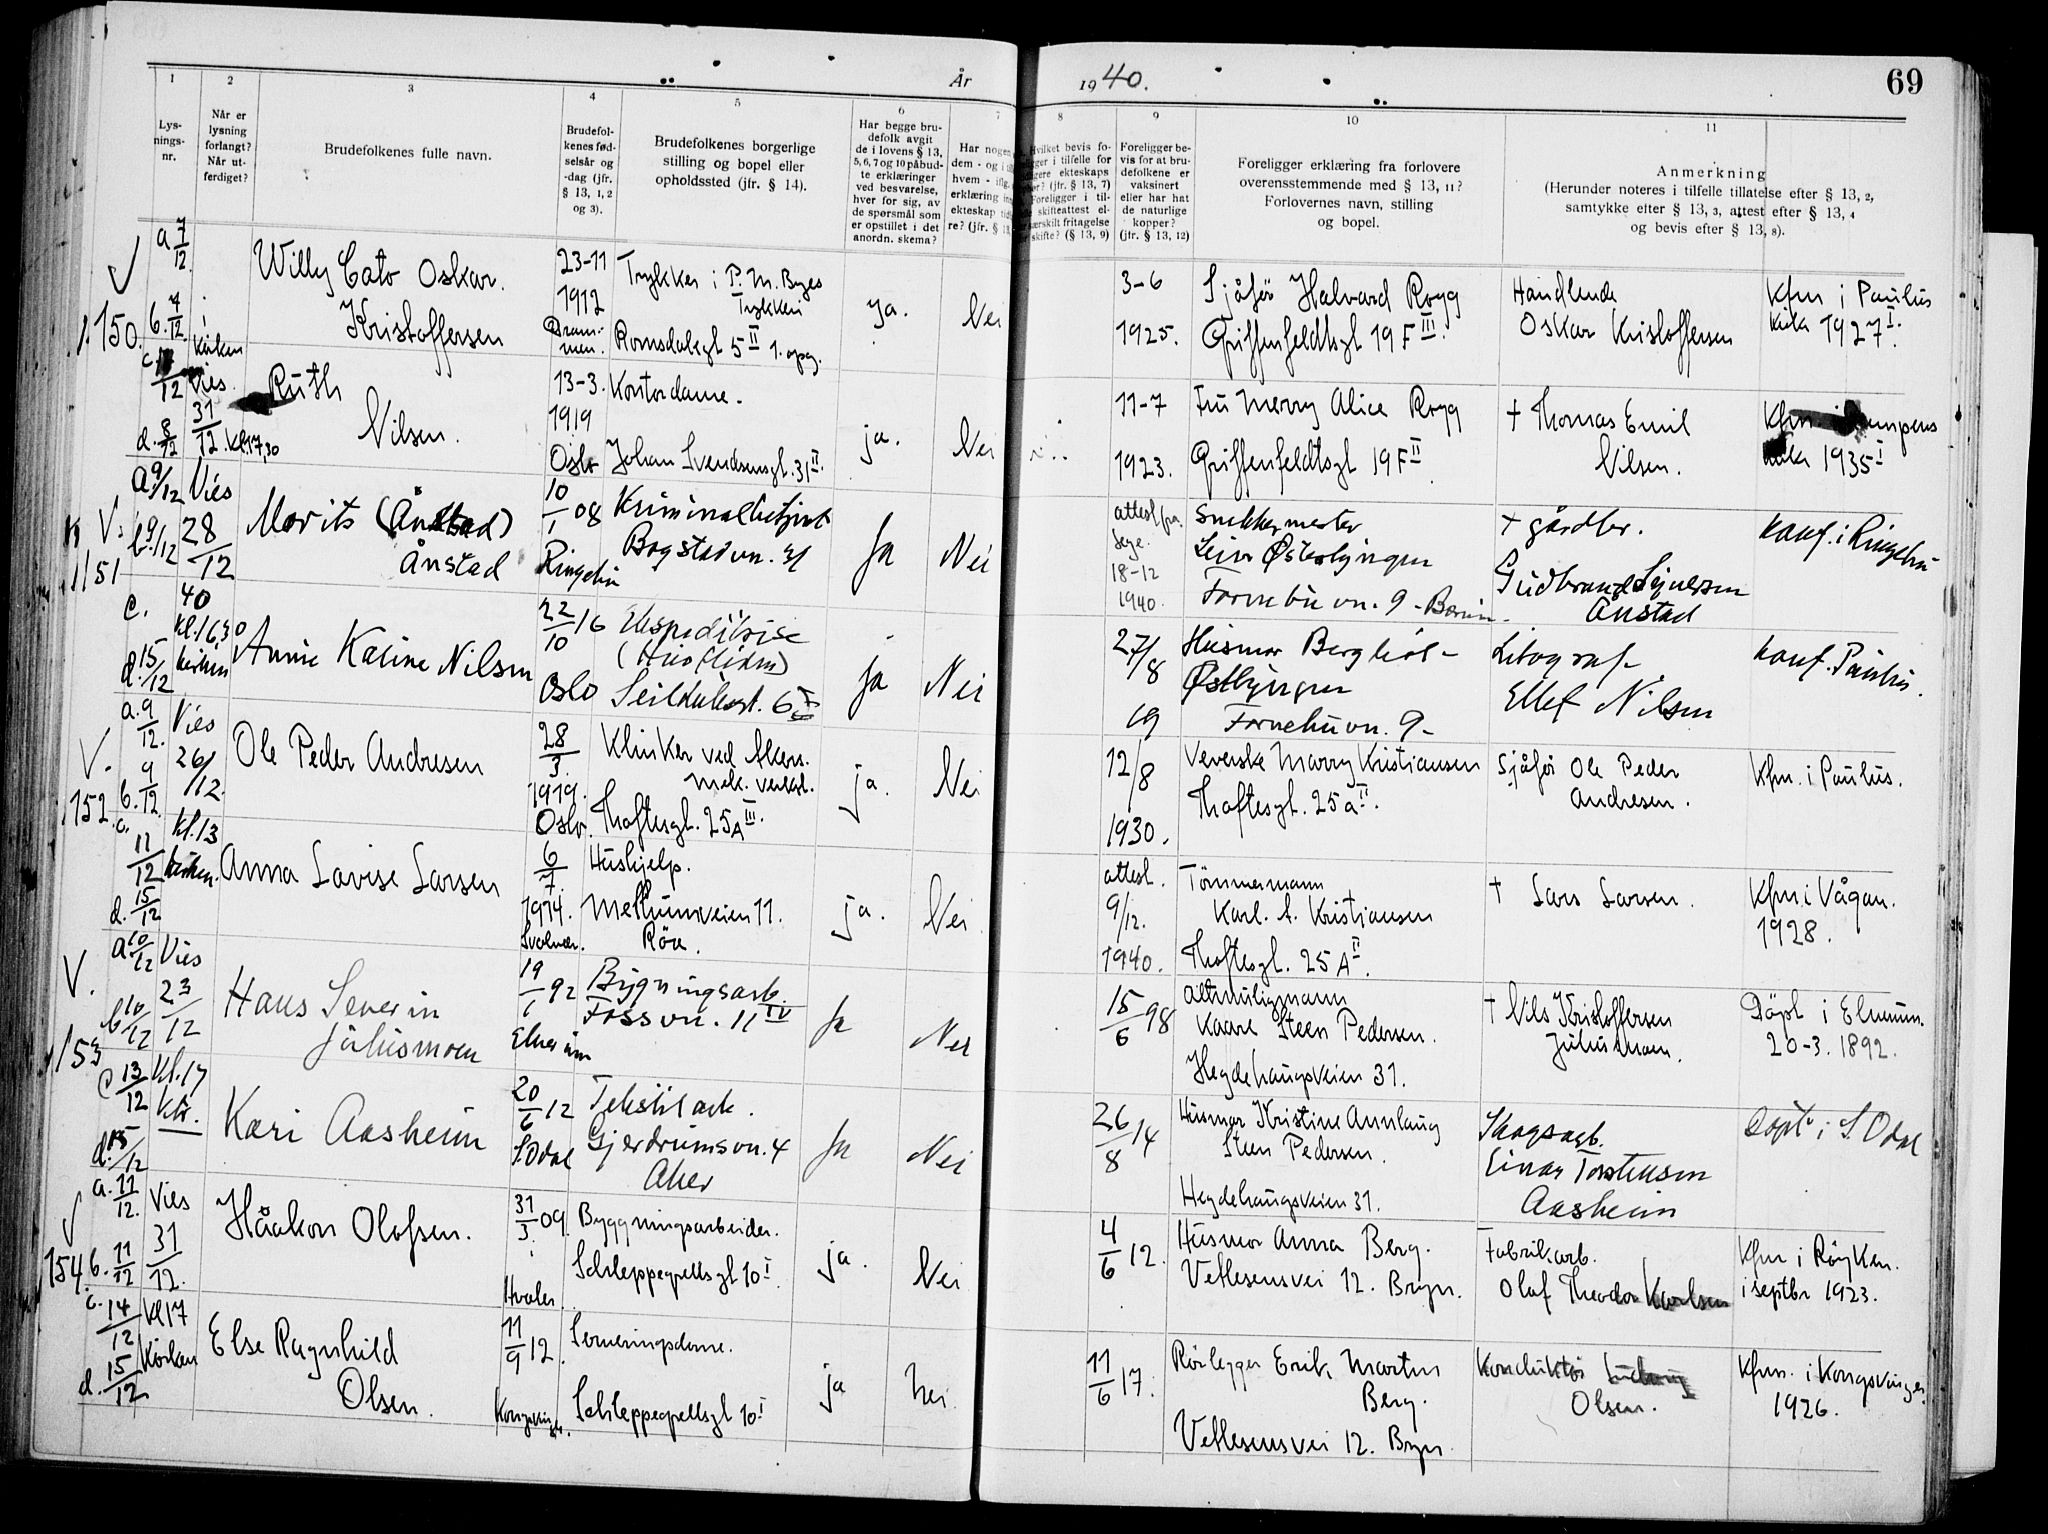 År 1940.
69
1
2
3
4
5
6
7
8
9
10
11
Lys-
nings-
nr.
Når er
lysning
forlangt?
Når ut-
ferdiget?
Brudefolkenes fulle navn.
Brudefol-
kenes fød-
selsår og
-dag (jfr.
§ 13, 1, 2
og 3).
Brudefolkenes borgerlige
stilling og bopel eller
opholdssted (jfr. § 14).
Har begge bru-
defolk avgit
de i lovens § 13,
5, 6, 7 og 10 påbud-
te erklæringer
ved besvarelse,
hver for sig, av
de spørsmål som
er opstillet i det
anordn. skema?
Har nogen
dem - og i
hvem - iflg.
erklæring
ekteskap
re? (jfr. §
Hvilket bevis fo-
i tilfelle for
ekteskaps
(jfr. § 13, 7)
Foreligger i til-
skifteattest el-
særskilt fritagelse
skifte? (§ 13, 9)
Foreligger be-
vis for at bru-
defolkene er
vaksinert
eller har hat
de naturlige
kopper?
(jfr. § 13, 12)
Foreligger erklæring fra forlovere
overensstemmende med § 13, 11?
Forlovernes navn, stilling
og bopel.
Anmerkning
(Herunder noteres i tilfelle tillatelse efter § 13, 2,
samtykke efter § 13, 3, attest efter § 13, 4
og bevis efter § 13, 8).
150.
a 7/12
b. 7/12
Kirken
Willy Cato Oskar
Kristoffersen
23-11
1912
Drammen.
Trykker i P. M. Byes
Trykkeri
Romsdalsgt 5 II 1. opg.
ja.
Nei
3-6
1925.
Sjåfør Halvard Rogg
Griffenfeldtsgt 19 F III.
Handlende
Oskar Kristoffersen
Kfm i Paulus
kirke 1927 I.
Vies
31/12. Kl. 17,30
d. 8/12
Ruth
Nilsen.
13-3.
1919
Oslo
Kontordame.
Johan Svendsensgt. 31 II.
ja.
Nei
11-7
1923.
Fru Merry Alice Rogg
Griffenfeldtsgt 19 F II
† Thomas Emil
Nilsen.
Kfm. i
kirke 1935 I
151
a 9/12 Vies
b 9/12 28/12
40
Morits (Ånstad)
Ånstad
10/1 08
Ringebu
Kriminalbetjent
Bogstadvn. 31
Ja
Nei
attest fra
lege.
18-12
1940.
Snekkermester
Leiv Østbyngen
Fornebuvn. 9 - Bærum.
† gårdbr.
Gudbrand
Ånstad
konf. i Ringebu
c.
Kl. 16 30
d. 15/12 kirken
Annie Karine Nilsen
22/10 16
Oslo
Ekspeditrise
(Husfliden)
Seilduksgt. 6
Ja
Nei
27/8
19
Husmor Bergliot
Østbyngen
Fornebuvn. 9 -
Litograf
Ellef Nilsen
konf. Paulus.
152.
a. 9/12. Vies
b. 9/12. 26/12.
Ole Peder Andresen
28/3.
1919.
Oslo.
Klinker ved Akers
mek. verkst.
Thoftesgt. 25 A III.
ja.
Nei
12/8
1930.
Veverske Marry Kristiansen
Thoftesgt. 25 a II.
Sjåfør Ole Peder
Andresen.
Kfm. i Paulus.
c. 11/12 Kl. 13
kirken.
d. 15/12
Anna Lovise Larsen
6/7.
1914.
Svolvær.
Hushjelp.
Mellumveien 11.
Røa.
ja.
Nei.
attest.
9/12.
1940.
Tømmermann
Karl. A. Kristiansen
Thoftesgt. 25 A II.
† Lars Larsen.
Kfm. i Vågan.
1928.
153
a. 10/12 Vies
b 10/12 23/12
Hans Severin
Julusmoen
19/1 92
Elverum
Bygningsarb.
Fossvn. 11 IV
Ja
Nei
15/6 98
Altmuligmann
Kaare Steen Pedersen.
Hegdehaugsveien 31.
† Nils Kristoffersen
Julusmoen.
Döpt i Elverum.
20-3. 1892.
c 13/12 Kl. 17
ktr.
d. 15/12
Kari Aasheim
20/6 12
S. Odal
Tekstilarb.
Gjerdrumsvn. 4
Aker
Ja
Nei
26/8 14
Husmor Kristine Annlaug
Steen Pedersen.
Hegdehaugsveien 31.
Skogsarb.
Einar Torstensen
Aasheim
Döpt i S. Odal
154.
a. 11/12. Vies
b. 11/12 31/12.
Håakon Olofsen.
31/3. 09.
Hvaler
Byggningsarbeider.
Schleppegrellsgt 10 I
ja.
Nei
4/6 12.
Husmor Anna Berg.
Vetlesensvei 12. Bryn.
Fabrikarb.
Olaf Theodor Karlsen
Kfm i Röyken.
i septbr 1923.
c. 14/12 Kl 17
Kirken
d. 15/12
Else Ragnhild
Olsen.
11/9 12.
Kongsvinger.
Serveringsdame.
Schleppegrellsgt 10 I
ja
Nei.
11/6 17.
Rörlegger Erik Martin
Berg.
Vetlesensvei 12. Bryn.
Konduktör Ludvig
Olsen.
Kfm. i Kongsvinger.
1926.